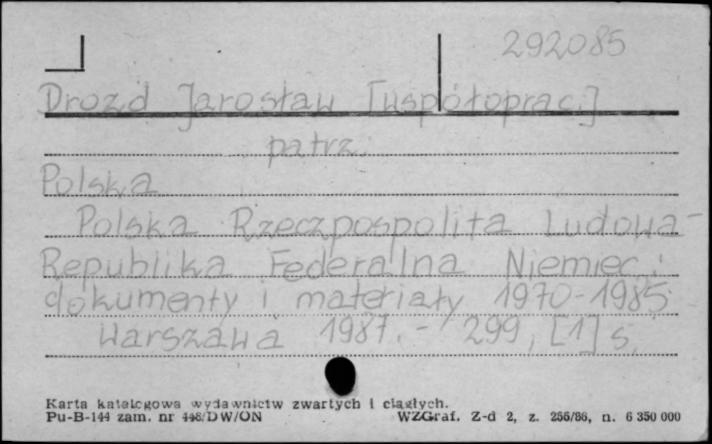 292085
Drozd Jarosław [współoprac.]
patrz.
Polska
Polska Rzeczpospolita Ludowa-
Republika Federalna Niemiec:
dokumenty i materiały 1970-1985
Warszawa 1987. - 299, [1] s.
Karta katalogowa wydawnictw zwartych i ciągłych.
Pu-B-144 zam. nr 448/DW/ON WZGraf. Z-d 2, z. 256/86, n. 6 350 000